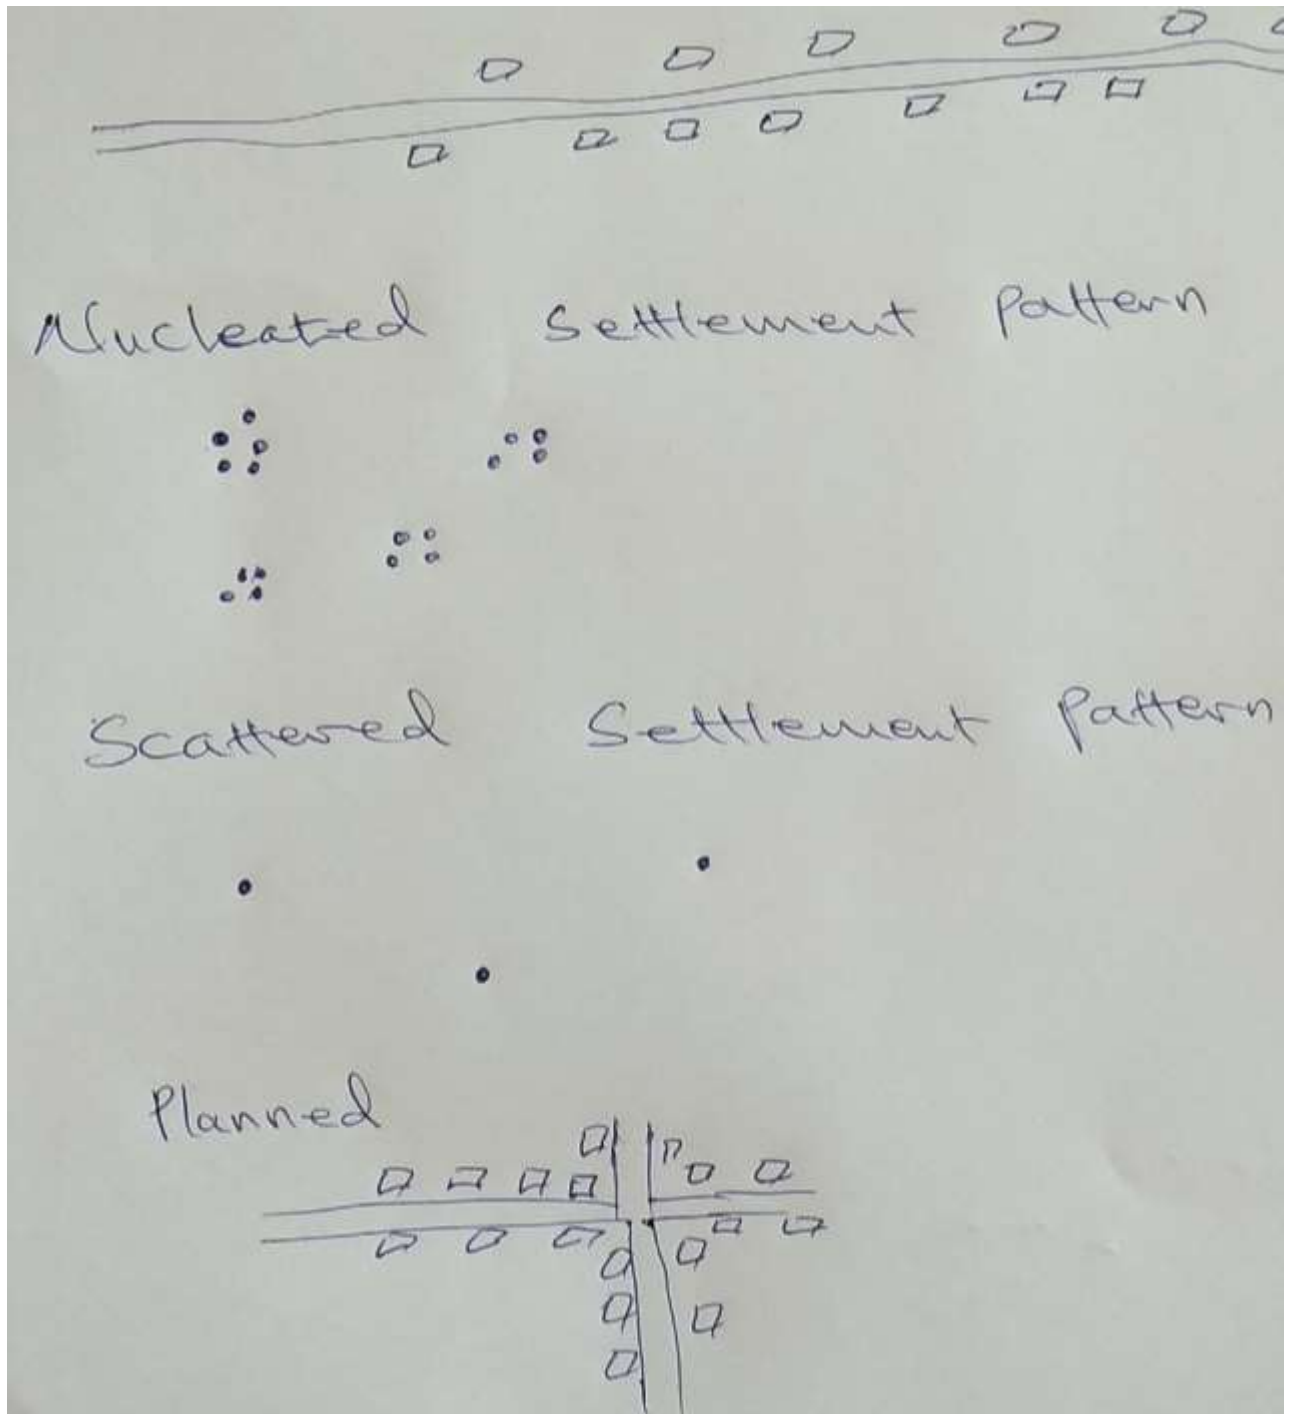 Nucleated Settlement Pattern
Scattered Settlement Pattern
Planned